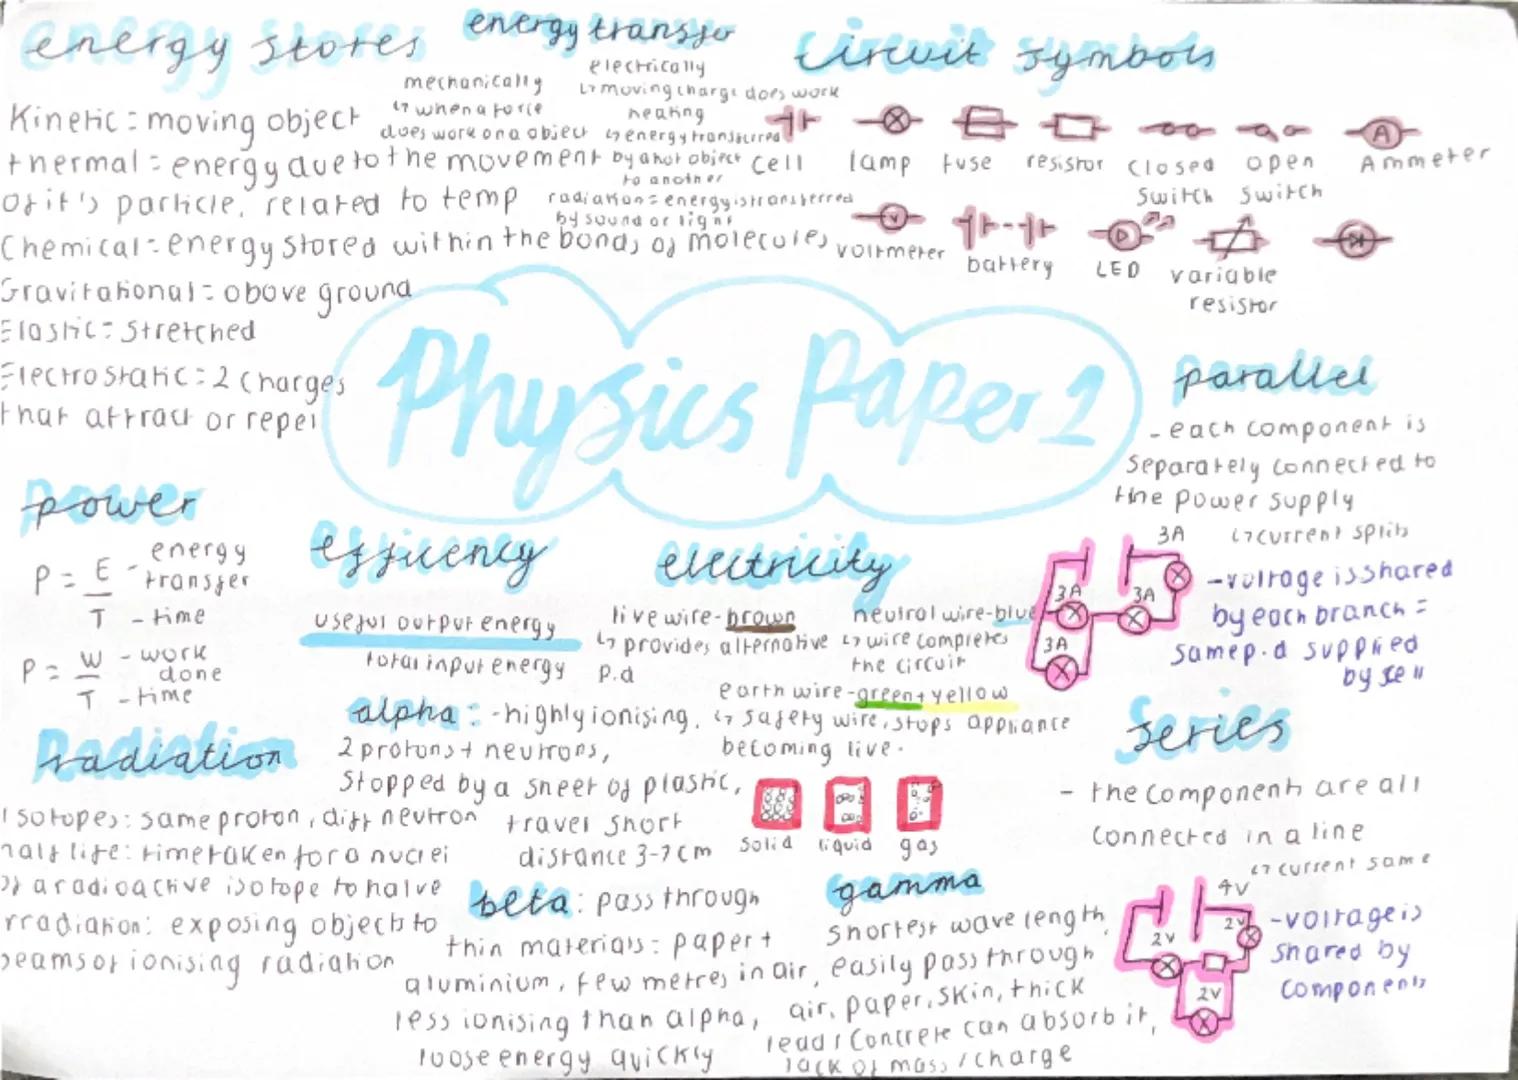 energy stores
Kinetic = moving object
thermal = energy due to the movement
of it's particle, related to temp
Chemical = energy stored within the bonds of molecules
Gravitational = above ground
Elastic = stretched
Electrostatic = 2 charges
that attract or repel
energy transfer
mechanically
↳ when a force
does work on a object
electrically
↳ moving charge does work
heating
↳ energy transferred
by a hot object
to another
radiation = energy is transferred
by sound or light
Circuit symbols
cell
lamp
fuse
resistor
closed
switch
open
switch
A
Ammeter
V
voltmeter
battery
LED
variable
resistor
Physics Paper 1
power
P = E - energy
transfer
T - time
P = W - work
done
T - time
efficency
useful output energy
total input energy
electricity
live wire - brown
↳ provides alternative
p.d
neutral wire - blue
↳ wire completes
the circuit
earth wire - green + yellow
↳ safety wire, stops appliance
becoming live.
solid
liquid
gas
parallel
- each component is
separately connected to
the power supply
↳ current splits
3A
3A
3A
3A
- voltage is shared
by each branch =
same p.d supplied
by cell
Series
- the components are all
connected in a line
↳ current same
4V
2V
2V
2V
- voltage is
shared by
components
Radiation
Isotopes: same proton, diff neutron
half life: time taken for a nuclei
of a radioactive isotope to halve
irradiation: exposing objects to
beams of ionising radiation
alpha: - highly ionising,
2 protons + neutrons,
stopped by a sheet of plastic,
travel short
distance 3-7cm
beta: pass through
thin materials: paper +
aluminium, few metres in air,
less ionising than alpha,
loose energy quickly
gamma
shortest wave length,
easily pass through
air, paper, skin, thick
lead / concrete can absorb it,
lack of mass / charge